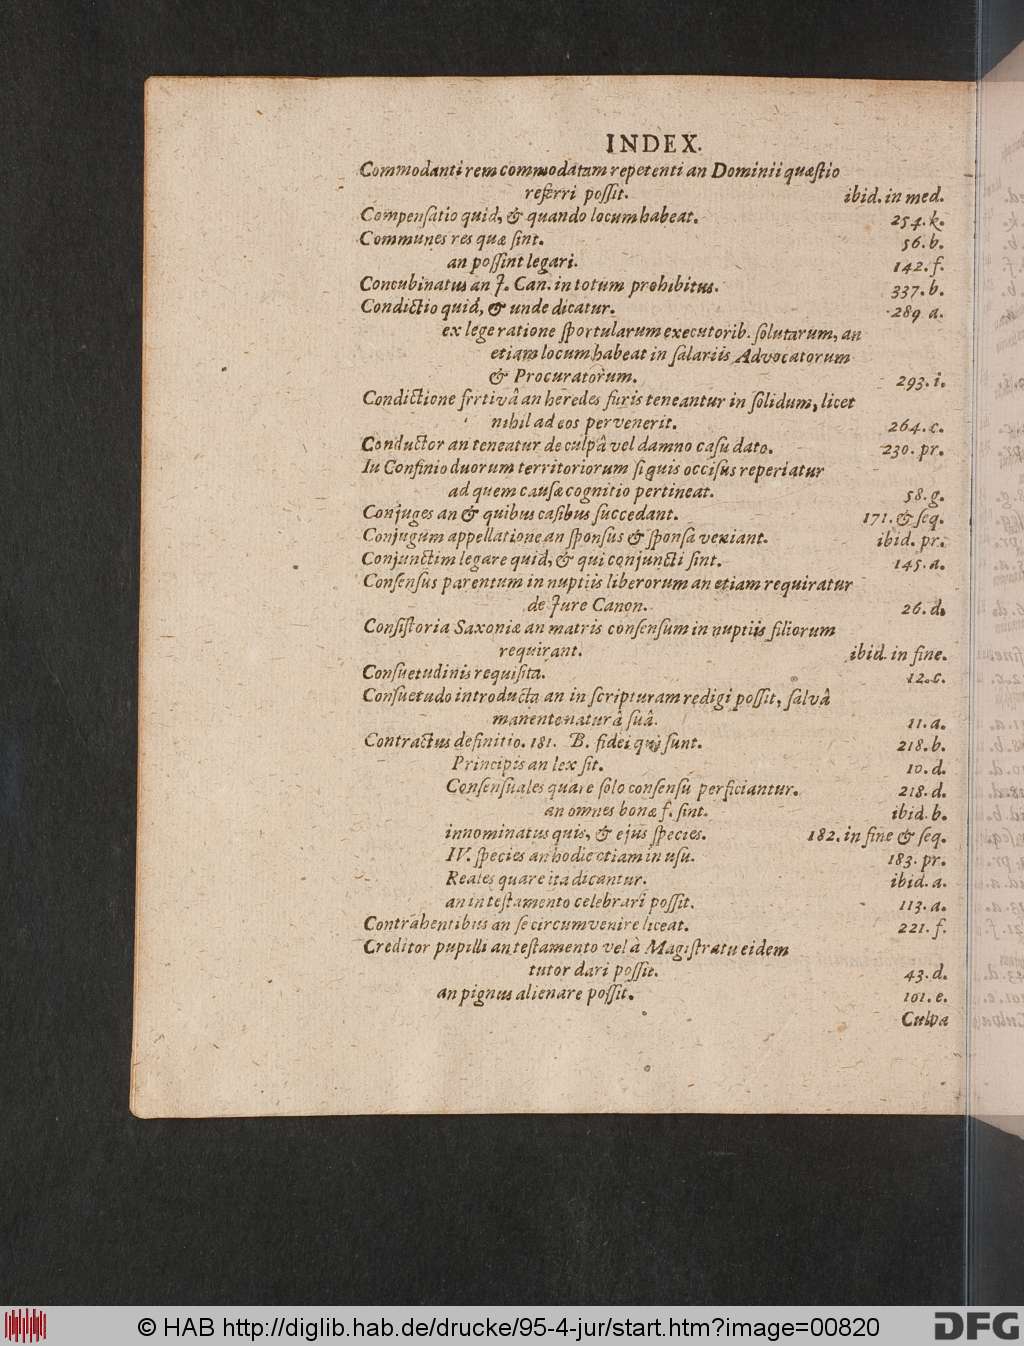 INDEX.
Commodanti rem commodatam repetenti an Dominii quæstio
referri possit. ibid. in med.
Compensatio quid, & quando locum habeat. 254. k.
Communes res quæ sint. 56. b.
an possint legari. 142. f.
Concubinatus an J. Can. in totum prohibitus. 337. b.
Condictio quid, & unde dicatur. 289 a.
ex lege ratione sportularum executorib. solutarum, an
etiam locum habeat in salariis Advocatorum
& Procuratorum. 293. i.
Condictione fertivâ an heredes furis teneantur in solidum, licet
nihil ad eos pervenerit. 264. c.
Conductor an teneatur de culpâ vel damno casu dato. 230. pr.
Iu Confinio duorum territoriorum si quis occisus reperiatur
ad quem causæ cognitio pertineat. 58. g.
Conjuges an & quibus casibus succedant. 171. & seq.
Conjugum appellatione an sponsus & sponsa veniant. ibid. pr.
Conjunctim legare quid, & qui conjuncti sint. 145. a.
Consensus parentum in nuptiis liberorum an etiam requiratur
de Jure Canon. 26. d.
Consistoria Saxoniæ an matris consensum in nuptiis filiorum
requirant. ibid. in fine.
Consuetudinis requisita. 12. c.
Consuetudo introducta an in scripturam redigi possit, salvâ
manente naturâ suâ. 11. a.
Contractus definitio. 181. B. fidei qui sunt. 218. b.
Principis an lex sit. 10. d.
Consensuales quare solo consensu perficiantur. 218. d.
an omnes bonæ f. sint. ibid. b.
innominatus quis, & ejus species. 182. in fine & seq.
IV. species an hodie etiam in usu. 183. pr.
Reales quare ita dicantur. ibid. a.
an in testamento celebrari possit. 113. a.
Contrahentibus an se circumvenire liceat. 221. f.
Creditor pupilli an testamento vel à Magistratu eidem
tutor dari possit. 43. d.
an pignus alienare possit. 101. e.
Culpa
© HAB http://diglib.hab.de/drucke/95-4-jur/start.htm?image=00820
DFG